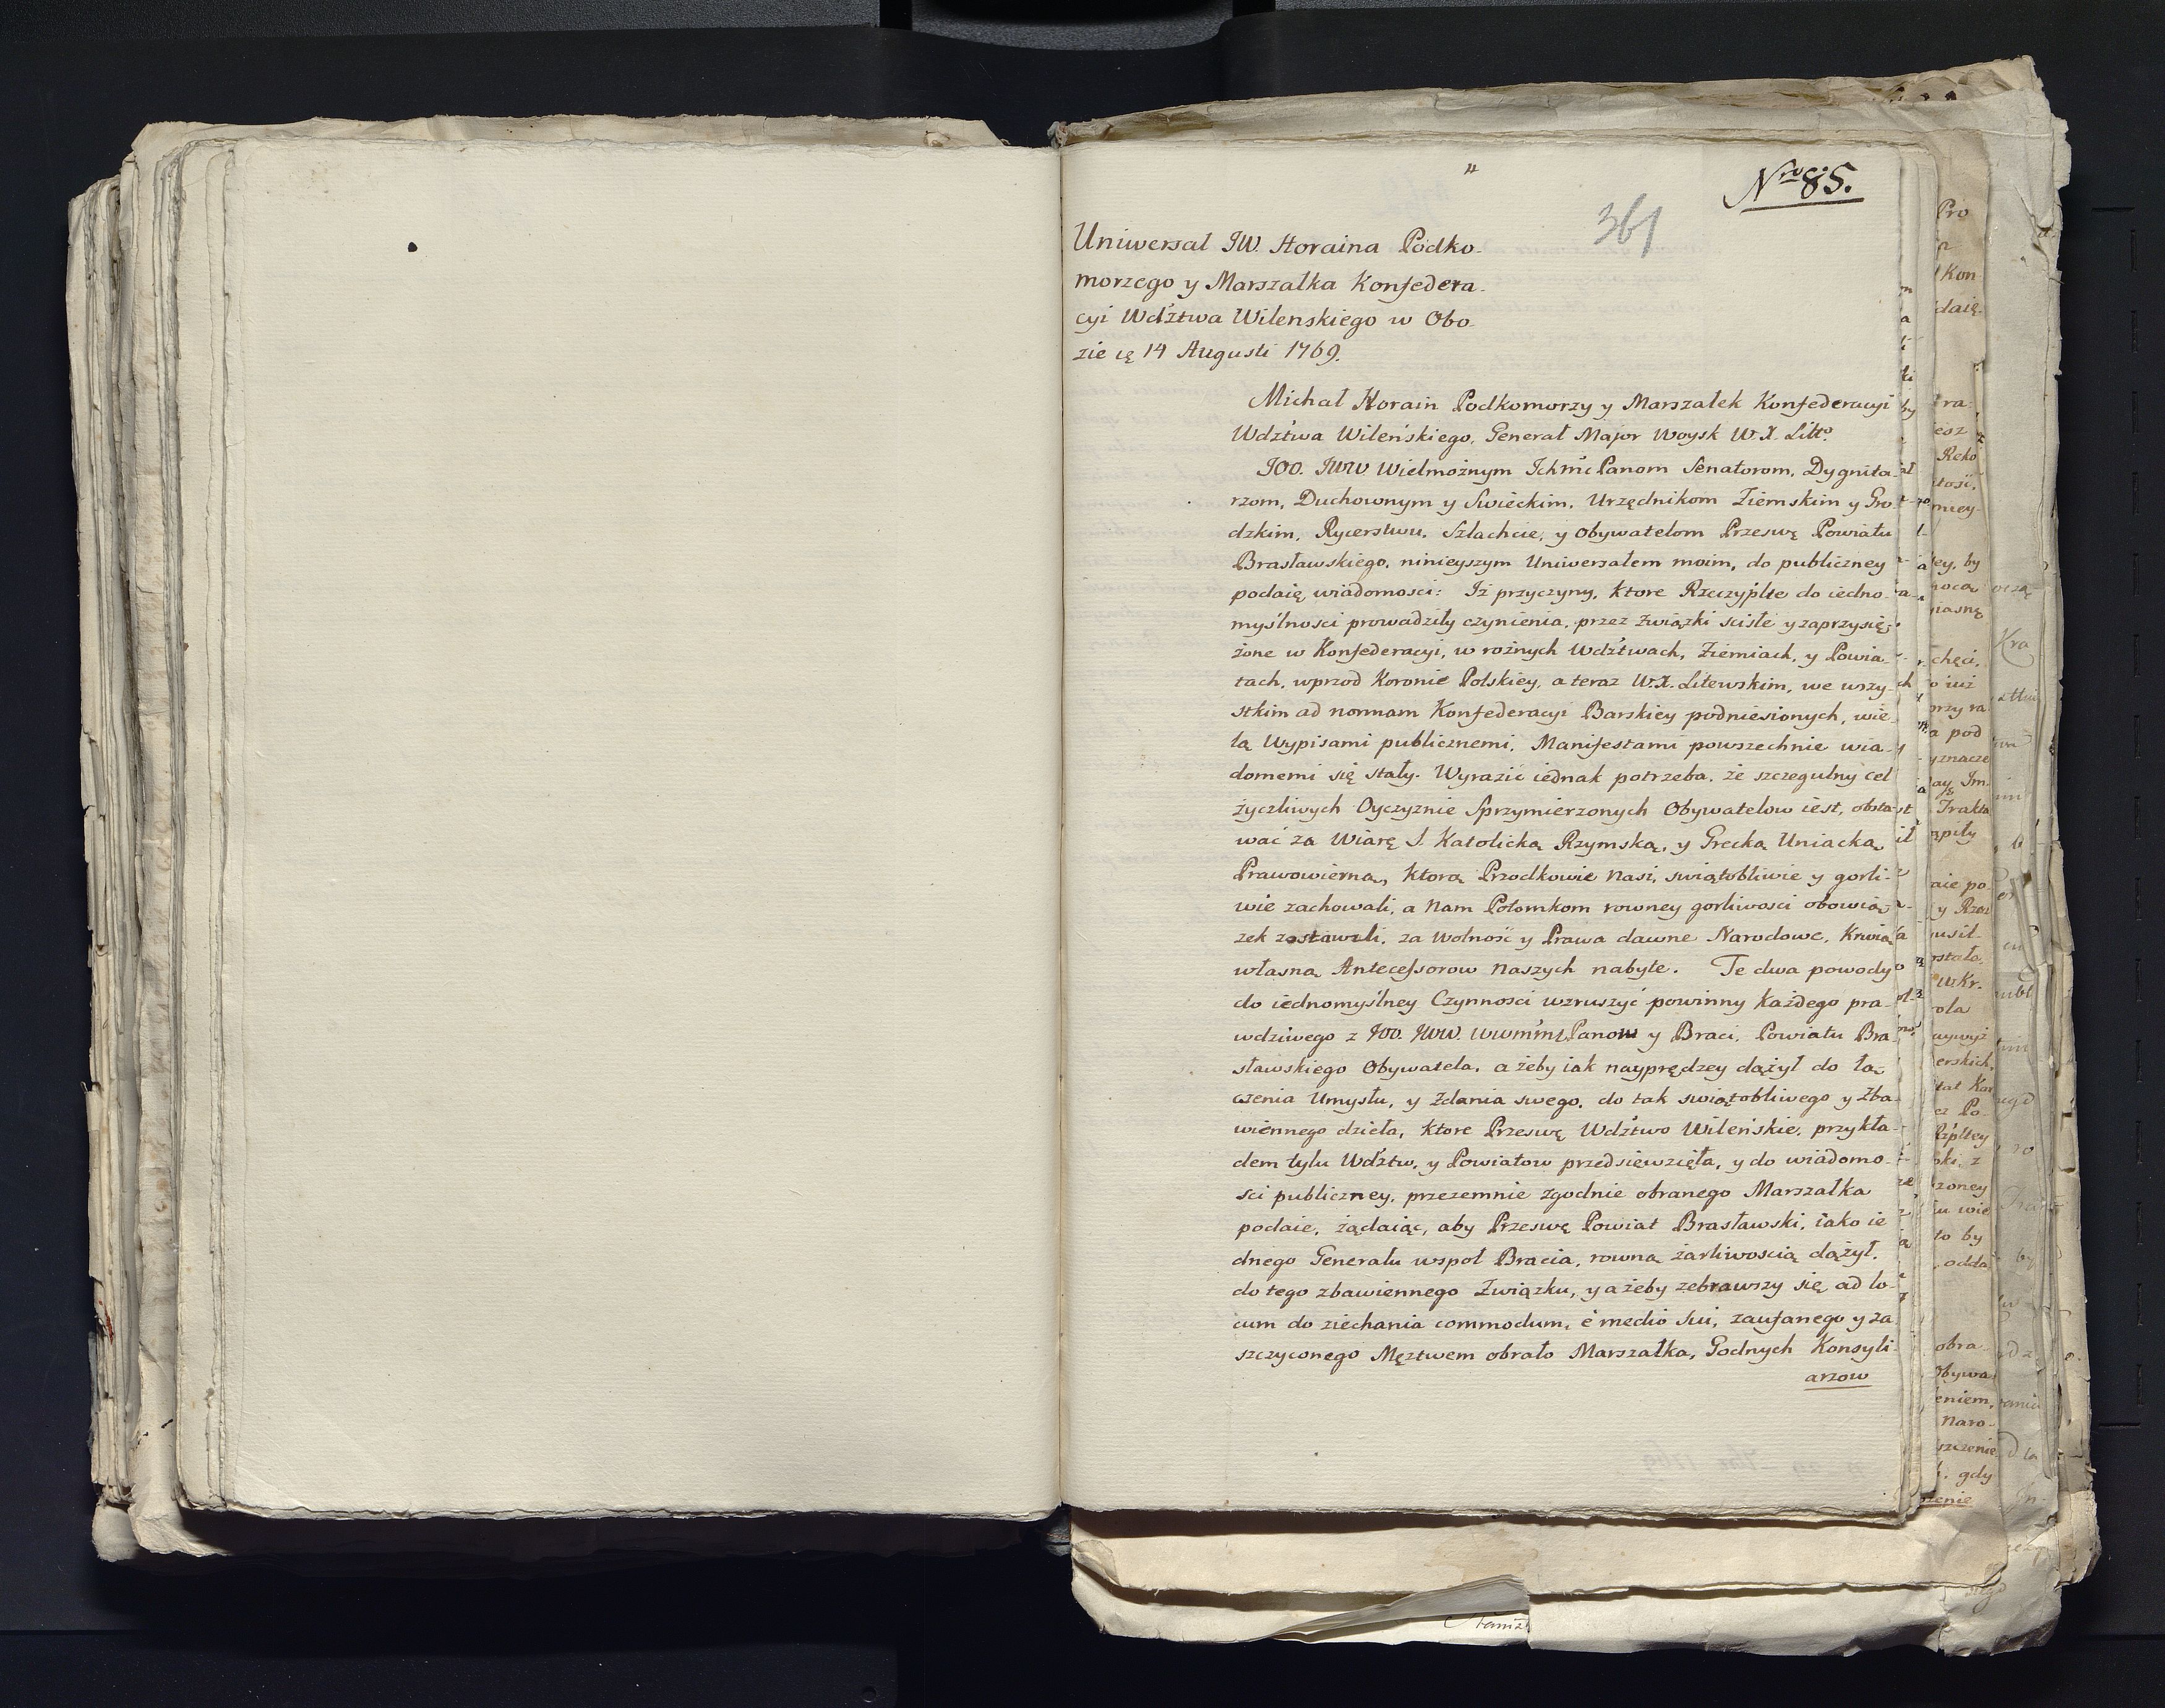 Nro 85.
361
Uniwersał JW. Horaina Podko-
morzego y Marszałka Konfedera-
cyi Wdztwa Wilenskiego w Obo-
zie ię 14 Augusti 1769.
Michał Horain Podkomorzy y Marszałek Konfederacyi
Wdztwa Wileńskiego, Generał Major Woysk W.X. Litto.
JOO. JWW Wielmożnym Ichmc Panom Senatorom, Dygnita-
rzom, Duchownym y Swieckim, Urzędnikom Ziemskim y Gro-
dzkim, Rycerstwu, Szlachcie, y Obywatelom Przeswę Powiatu
Brasławskiego, ninieyszym Uniwersałem moim, do publiczney
podaię wiadomosci: Iż przyczyny, ktore Rzeczyplte do iedno-
myślnosci prowadziły czynienia, przez związki scisłe y zaprzysię-
żone w Konfederacyi, w rożnych Wdztwach, Ziemiach, y Powia-
tach, wprzod Koronie Polskiey, a teraz W.X. Litewskim, we wszy-
stkim ad normam Konfederacyi Barskiey podniesionych, wie-
lą Wypisami publicznemi, Manifestami powszechnie wia-
domemi się stały. Wyrazić iednak potrzeba, że szczegulny cel
życzliwych Oyczyznie Sprzymierzonych Obywatelow iest, obsta-
wać za Wiarę S. Katolicką Rzymską, y Grecką Uniacką
Prawowierną, ktorą Przodkowie nasi, swiątobliwie y gorli-
wie zachowali, a Nam Potomkom rowney gorliwosci obowią-
zek zostawili, za Wolność y Prawa dawne Narodowe, Krwią
własną Antecessorow Naszych nabyte. Te dwa powody
do iednomyślney Czynnosci wzruszyć powinny każdego pra-
wdziwego z JOO. JWW. WWmm Panow y Braci, Powiatu Bra-
sławskiego Obywatela, a żeby iak nayprędzey dążył do łą-
czenia Umysłu, y Zdania swego, do tak swiątobliwego y Zba-
wiennego dzieła, ktore Przeswę Wdztwo Wileńskie, przykła-
dem tylu Wdztw, y Powiatow przedsięwzięła, y do wiadomo-
sci publiczney, przezemnie zgodnie obranego Marszałka
podaie, żądaiąc, aby Przeswę Powiat Brasławski, iako ie
dnego Generału wspoł Bracia, rowną żarliwoscią dążył,
do tego zbawiennego Związku, y ażeby zebrawszy się ad lo-
cum do ziechania commodum, è medio sui, zaufanego y za
szczyconego Męztwem obrało Marszałka, Godnych Konsyli-
arzow